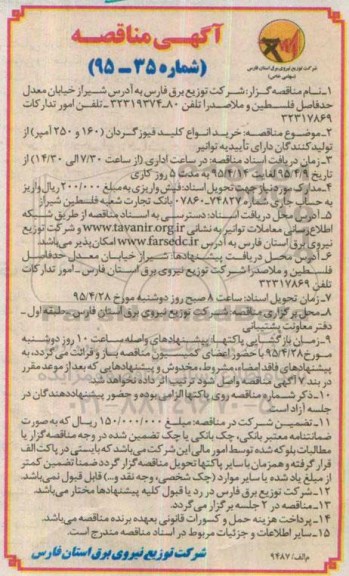 آگهـی مناقصـه
(شماره ۳۵ – ۹۵)
شرکت توزیع نیروی برق استان فارس
(سهامی خاص)
۱ـ نـام مناقصه گـزار: شـرکت توزیع برق فارس به آدرس شیراز خیابان معدل
حدفاصل فلسطین و ملاصدرا تلفن ۸۰ـ۳۲۳۱۹۳۷۴ ـ تلفن امور تدارکات
۳۲۳۱۷۸۶۹
۲ـ موضوع مناقصه: خرید انواع کلید فیوز گردان (۱۶۰ و ۲۵۰ آمپر) از
تولیدکنندگان دارای تأییدیه توانیر
۳ـ زمان دریافت اسناد مناقصه: در ساعت اداری (از ساعت ۷/۳۰ الی ۱۴/۳۰) از
تاریخ ۹۵/۴/۹ لغایت ۹۵/۴/۱۴ به مدت ۵ روز کاری
۴ـ مدارک مورد نیاز جهت تحویل اسناد: فیش واریزی به مبلغ ۲۰۰/۰۰۰ ریال واریز
به حساب جاری شماره ۰۷۸۶۰۰۷۴۸۲۷ بانک تجارت شعبه فلسطین شیراز
۵ـ آدرس محل دریافت اسناد: دسترسی به اسناد مناقصه از طریق شبکه
اطلاع‌رسانی معاملات توانیر به نشانی www.tavanir.org.ir و شرکت توزیع
نیروی برق استان فارس به آدرس www.farsedc.ir امکان پذیر می‌باشد
۶ـ آدرس محـل دریافـت پیشنهادها: شیراز خیابان معـدل حدفاصـل
فلسطین و ملاصدرا شرکت توزیع نیروی برق استان فارس ـ امور تدارکات
تلفن ۳۲۳۱۷۸۶۹
۷ـ زمان تحویل اسناد: ساعت ۸ صبح روز دوشنبه مورخ ۹۵/۴/۲۸
۸ـ محل برگزاری مناقصه: شرکت توزیع نیروی برق استان فارس ـ طبقه اول ـ
دفتر معاونت پشتیبانی
۹ـ زمـان بازگشایی پاکتهـا: پیشنهادهای واصله ساعت ۱۰ روز دوشنبه
مورخ ۹۵/۴/۲۸ با حضور اعضای کمیسیون مناقصه باز و قرائت می‌گردد، به
پیشنهادهای فاقد امضاء، مشروط، مخدوش و پیشنهادهایی که بعد از موعد مقرر
در بند ۷ آگهی مناقصه واصل شود ترتیب اثر داده نخواهد شد
۱۰ـ ذکر شماره مناقصه روی پاکتها الزامی بوده و حضور پیشنهاددهندگان در
جلسه آزاد است
۱۱ـ تضمین شـرکت در مناقصه: مبلغ ۱۵۰/۰۰۰/۰۰۰ ریـال که به صورت
ضمانتنامه معتبر بانکی، چک بانکی یا چک تضمین شده در وجه مناقصه‌گزار یا
مطالبات بلوکه شده توسط امور مالی این شرکت می‌باشد که بایستی در پاکت الف
قرار گرفته و همزمان با سایر پاکتها تحویل مناقصه‌گزار گردد ضمناً تضمین کمتر
از مبلغ یاد شده یا سایر موارد (چک شخصی، وجه نقد و...) قابل قبول نمی‌باشد.
۱۲ـ شرکت توزیع برق فارس در رد یا قبول کلیه پیشنهادها مختار می‌باشد.
۱۳ـ مناقصه در ۲ جلسه برگزار می‌گردد.
۱۴ـ پرداخت هزینه حمل و کسورات قانونی بعهده برنده مناقصه می‌باشد.
۱۵ـ سایر اطلاعات و جزئیات مربوط در اسناد مناقصه مندرج است.
م الف/ ۹۴۸۷
شرکت توزیع نیروی برق استان فارس